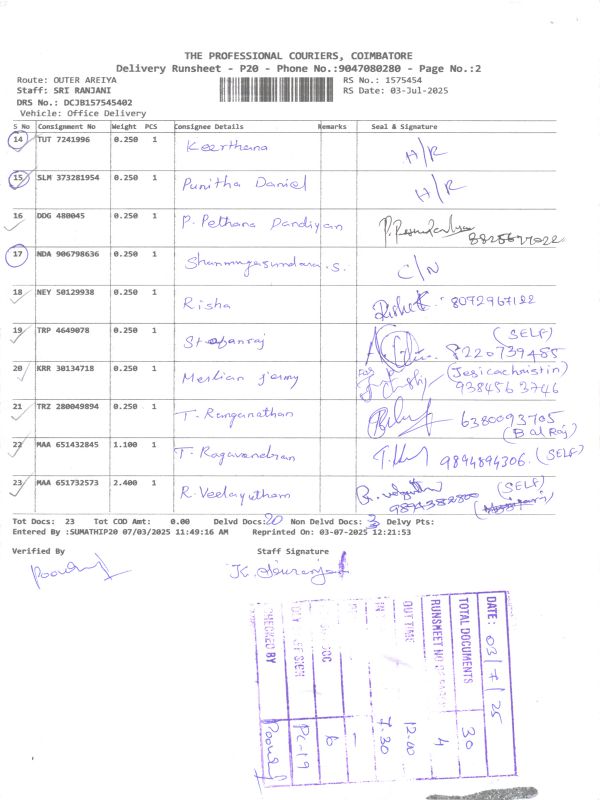 THE PROFESSIONAL COURIERS, COIMBATORE
Delivery Runsheet - P20 - Phone No.:9047080280 - Page No.:2
Route: OUTER AREIYA RS No.: 1575454
Staff: SRI RANJANI RS Date: 03-Jul-2025
DRS No.: DCJB157545402
Vehicle: Office Delivery
S No Consignment No Weight PCS Consignee Details Remarks Seal & Signature
14 TUT 7241996 0.250 1 Keerthana H/R
15 SLM 373281954 0.250 1 Punitha Daniel H/R
16 DDG 480045 0.250 1 P. Pethana Pandiyan
17 NDA 906798636 0.250 1 Shanmugasundara.S. C/N
18 NEY 50129938 0.250 1 Risha 8072967122
19 TRP 4649078 0.250 1 Stepanraj (SELF)
8220739485
20 KRR 30134718 0.250 1 Merlian jermy (Jesicachristin)
9384563746
21 TRZ 280049894 0.250 1 T. Ranganathan 6380093705
(Bal Raj)
22 MAA 651432845 1.100 1 T. Ragavendran 9894894306. (SELF)
23 MAA 651732573 2.400 1 R. Veelayutham (SELF)
Tot Docs: 23 Tot COD Amt: 0.00 Delvd Docs:20 Non Delvd Docs: 3 Delvy Pts:
Entered By :SUMATHIP20 07/03/2025 11:49:16 AM Reprinted On: 03-07-2025 12:21:53
Verified By Staff Signature
DATE: 03/7/25
TOTAL DOCUMENTS 30
RUNSMEET NO 4
OUT TIME 12.00
7.30
6
SIGN PC-19
CHECKED BY